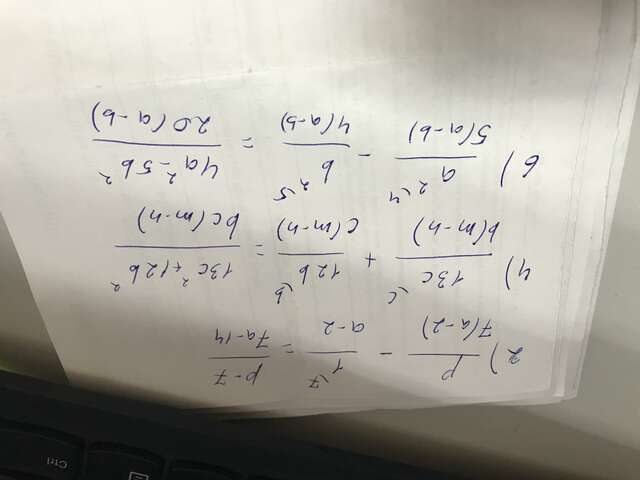 2) p/7(a-2) - 1^7/a-2 = p-7/7a-14
4) 13c^c/b(m-n) + 12b^b/c(m-n) = 13c²+12b²/bc(m-n)
6) a²^4/5(a-b) - b²^5/4(a-b) = 4a²-5b²/20(a-b)
Ctrl